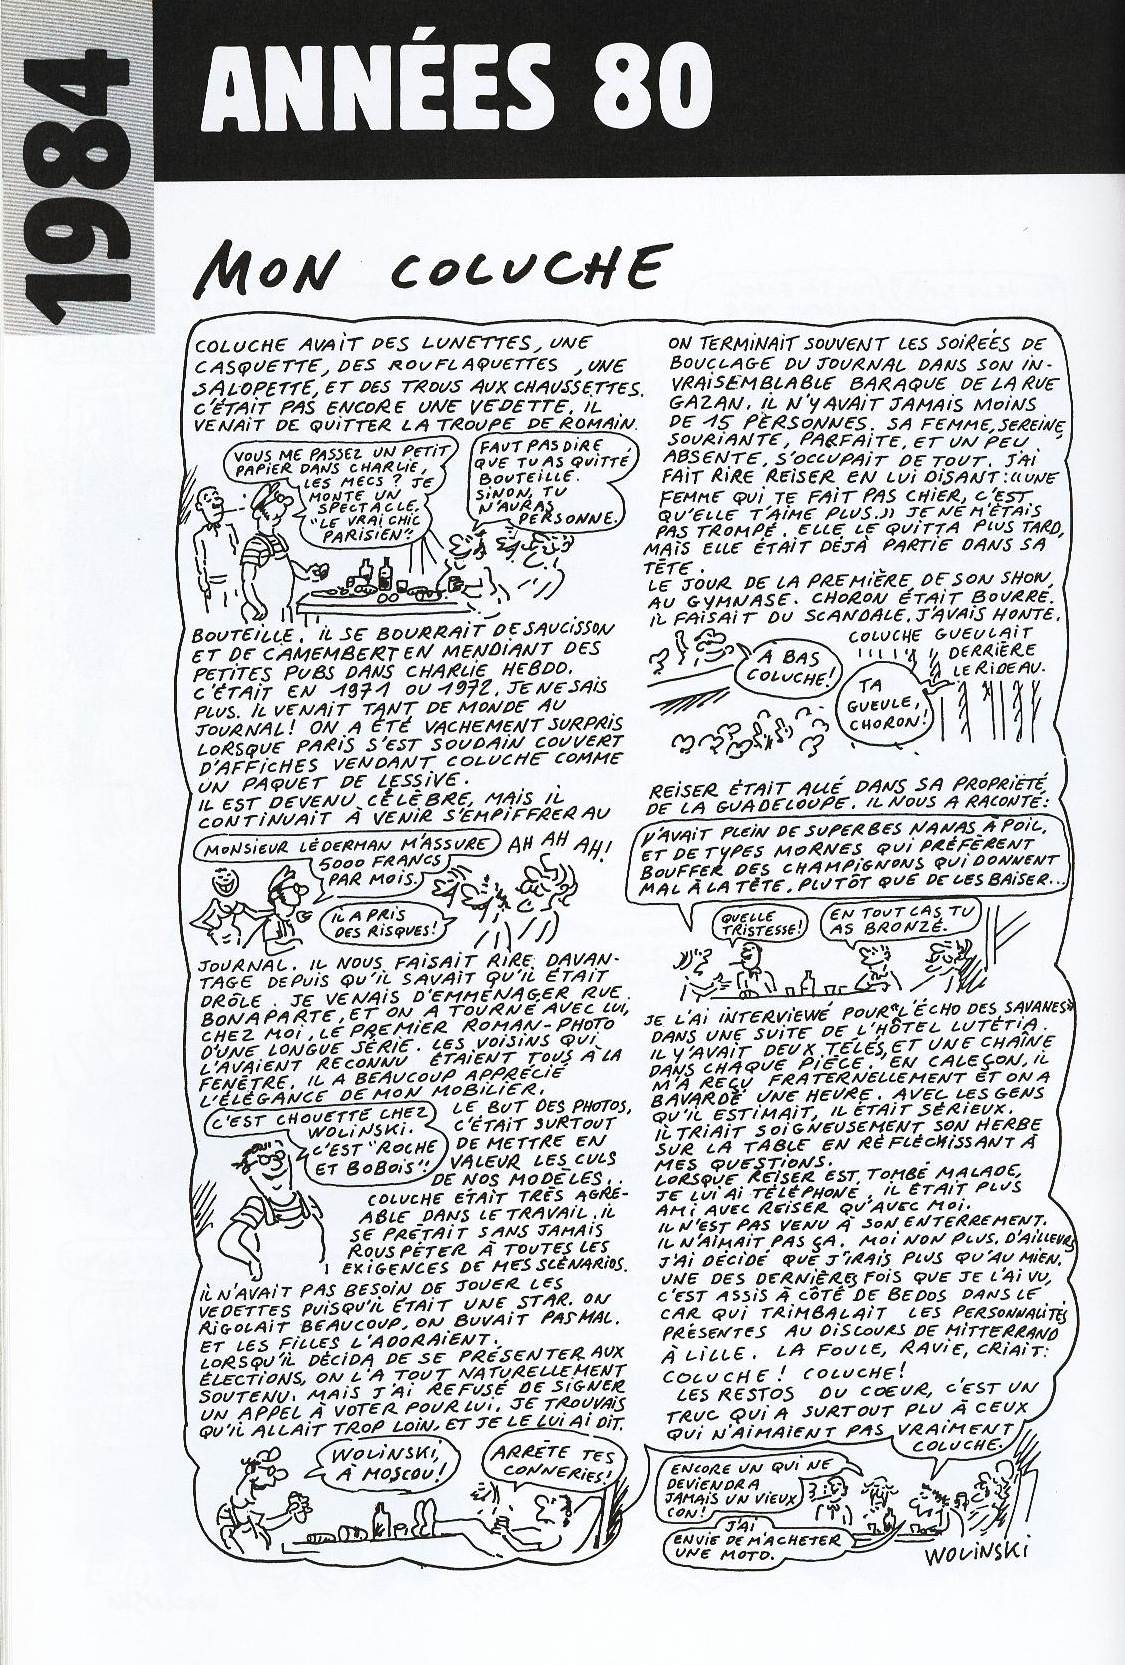 1984
ANNÉES 80
MON COLUCHE
COLUCHE AVAIT DES LUNETTES, UNE
CASQUETTE, DES ROUFLAQUETTES, UNE
SALOPETTE, ET DES TROUS AUX CHAUSSETTES.
C'ÉTAIT PAS ENCORE UNE VEDETTE. IL
VENAIT DE QUITTER LA TROUPE DE ROMAIN.
VOUS ME PASSEZ UN PETIT
PAPIER DANS CHARLIE,
LES MECS ? JE
MONTE UN
SPECTACLE.
"LE VRAI CHIC
PARISIEN".
FAUT PAS DIRE
QUE TU AS QUITTÉ
BOUTEILLE.
SINON, TU
N'AURAS
PERSONNE.
BOUTEILLE. IL SE BOURRAIT DE SAUCISSON
ET DE CAMEMBERT EN MENDIANT DES
PETITES PUBS DANS CHARLIE HEBDO.
C'ÉTAIT EN 1971 OU 1972. JE NE SAIS
PLUS. IL VENAIT TANT DE MONDE AU
JOURNAL! ON A ÉTÉ VACHEMENT SURPRIS
LORSQUE PARIS S'EST SOUDAIN COUVERT
D'AFFICHES VENDANT COLUCHE COMME
UN PAQUET DE LESSIVE.
IL EST DEVENU CÉLÈBRE, MAIS IL
CONTINUAIT À VENIR S'EMPIFFRER AU
MONSIEUR LÉDERMAN M'ASSURE
5000 FRANCS
PAR MOIS.
AH AH AH!
IL A PRIS
DES RISQUES!
JOURNAL. IL NOUS FAISAIT RIRE DAVAN-
TAGE DEPUIS QU'IL SAVAIT QU'IL ÉTAIT
DRÔLE. JE VENAIS D'EMMÉNAGER RUE
BONAPARTE, ET ON A TOURNÉ AVEC LUI,
CHEZ MOI, LE PREMIER ROMAN-PHOTO
D'UNE LONGUE SÉRIE. LES VOISINS QUI
L'AVAIENT RECONNU ÉTAIENT TOUS À LA
FENÊTRE. IL A BEAUCOUP APPRÉCIÉ
L'ÉLÉGANCE DE MON MOBILIER.
C'EST CHOUETTE CHEZ
WOLINSKI.
C'EST "ROCHE
ET BOBOIS"!
LE BUT DES PHOTOS,
C'ÉTAIT SURTOUT
DE METTRE EN
VALEUR LES CULS
DE NOS MODÈLES.
COLUCHE ÉTAIT TRÈS AGRÉ-
ABLE DANS LE TRAVAIL. IL
SE PRÊTAIT SANS JAMAIS
ROUSPÉTER À TOUTES LES
EXIGENCES DE MES SCÉNARIOS.
IL N'AVAIT PAS BESOIN DE JOUER LES
VEDETTES PUISQU'IL ÉTAIT UNE STAR. ON
RIGOLAIT BEAUCOUP, ON BUVAIT PAS MAL.
ET LES FILLES L'ADORAIENT.
LORSQU'IL DÉCIDA DE SE PRÉSENTER AUX
ÉLECTIONS, ON L'A TOUT NATURELLEMENT
SOUTENU. MAIS J'AI REFUSÉ DE SIGNER
UN APPEL À VOTER POUR LUI. JE TROUVAIS
QU'IL ALLAIT TROP LOIN, ET JE LE LUI AI DIT.
WOLINSKI,
À MOSCOU!
ARRÊTE TES
CONNERIES!
ON TERMINAIT SOUVENT LES SOIREÉS DE
BOUCLAGE DU JOURNAL DANS SON IN-
VRAISEMBLABLE BARAQUE DE LA RUE
GAZAN. IL N'Y AVAIT JAMAIS MOINS
DE 15 PERSONNES. SA FEMME, SEREINE,
SOURIANTE, PARFAITE, ET UN PEU
ABSENTE, S'OCCUPAIT DE TOUT. J'AI
FAIT RIRE REISER EN LUI DISANT: «UNE
FEMME QUI TE FAIT PAS CHIER, C'EST
QU'ELLE T'AIME PLUS.» JE NE M'ÉTAIS
PAS TROMPÉ. ELLE LE QUITTA PLUS TARD,
MAIS ELLE ÉTAIT DÉJÀ PARTIE DANS SA
TÊTE.
LE JOUR DE LA PREMIÈRE DE SON SHOW,
AU GYMNASE. CHORON ÉTAIT BOURRÉ.
IL FAISAIT DU SCANDALE. J'AVAIS HONTE.
COLUCHE GUEULAIT
DERRIÈRE
LE RIDEAU.
À BAS
COLUCHE!
TA
GUEULE,
CHORON!
REISER ÉTAIT ALLÉ DANS SA PROPRIÉTÉ
DE LA GUADELOUPE. IL NOUS A RACONTÉ:
Y'AVAIT PLEIN DE SUPERBES NANAS À POIL,
ET DE TYPES MORNES QUI PRÉFÈRENT
BOUFFER DES CHAMPIGNONS QUI DONNENT
MAL À LA TÊTE, PLUTÔT QUE DE LES BAISER...
QUELLE
TRISTESSE!
EN TOUT CAS, TU
AS BRONZÉ.
JE L'AI INTERVIEWÉ POUR "L'ÉCHO DES SAVANES"
DANS UNE SUITE DE L'HÔTEL LUTÉTIA.
IL Y'AVAIT DEUX TÉLÉS, ET UNE CHAÎNE
DANS CHAQUE PIÈCE. EN CALEÇON, IL
M'A REÇU FRATERNELLEMENT ET ON A
BAVARDÉ UNE HEURE. AVEC LES GENS
QU'IL ESTIMAIT, IL ÉTAIT SÉRIEUX.
IL TRIAIT SOIGNEUSEMENT SON HERBE
SUR LA TABLE EN RÉFLÉCHISSANT À
MES QUESTIONS.
LORSQUE REISER EST TOMBÉ MALADE,
JE LUI AI TÉLÉPHONÉ. IL ÉTAIT PLUS
AMI AVEC REISER QU'AVEC MOI.
IL N'EST PAS VENU À SON ENTERREMENT.
IL N'AIMAIT PAS ÇA. MOI NON PLUS, D'AILLEURS
J'AI DÉCIDÉ QUE J'IRAIS PLUS QU'AU MIEN.
UNE DES DERNIÈRES FOIS QUE JE L'AI VU,
C'EST ASSIS À CÔTÉ DE BEDOS DANS LE
CAR QUI TRIMBALAIT LES PERSONNALITÉS
PRÉSENTES AU DISCOURS DE MITTERRAND
À LILLE. LA FOULE, RAVIE, CRIAIT:
COLUCHE! COLUCHE!
LES RESTOS DU COEUR, C'EST UN
TRUC QUI A SURTOUT PLU À CEUX
QUI N'AIMAIENT PAS VRAIMENT
COLUCHE.
ENCORE UN QUI NE
DEVIENDRA
JAMAIS UN VIEUX
CON!
J'AI
ENVIE DE M'ACHETER
UNE MOTO.
WOLINSKI